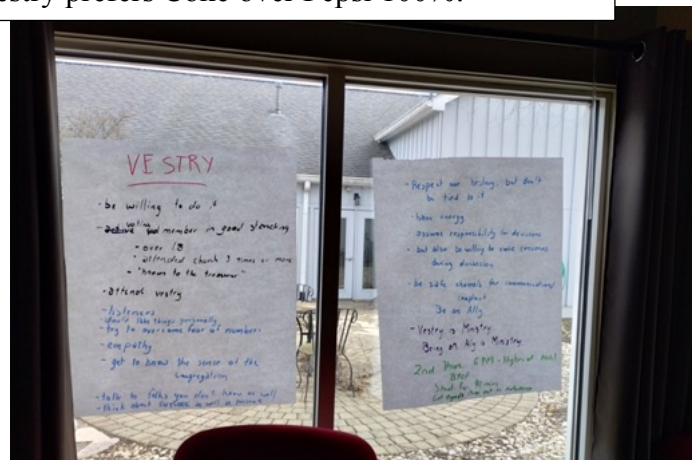 estry prefers Coke over Pepsi 100%.
VESTRY
- be willing to do it
- active voting member in good standing
- over 18
- attended church 3 times or more
- "known to the treasurer"
- attend vestry
- listeners
- don't take things personally
- try to overcome fear of numbers
- empathy
- get to know the sense of the
congregation
- talk to folks you don't know as well
- think about success as well as
- Respect our history, but don't
be tied to it
- have energy
- assume responsibility for decisions
- but also be willing to voice concerns
during discussion
- be safe channels for communication/
complaint
Be an Ally
- Vestry is Ministry
Being an Ally is Ministry
2nd 6 PM - Hybrid